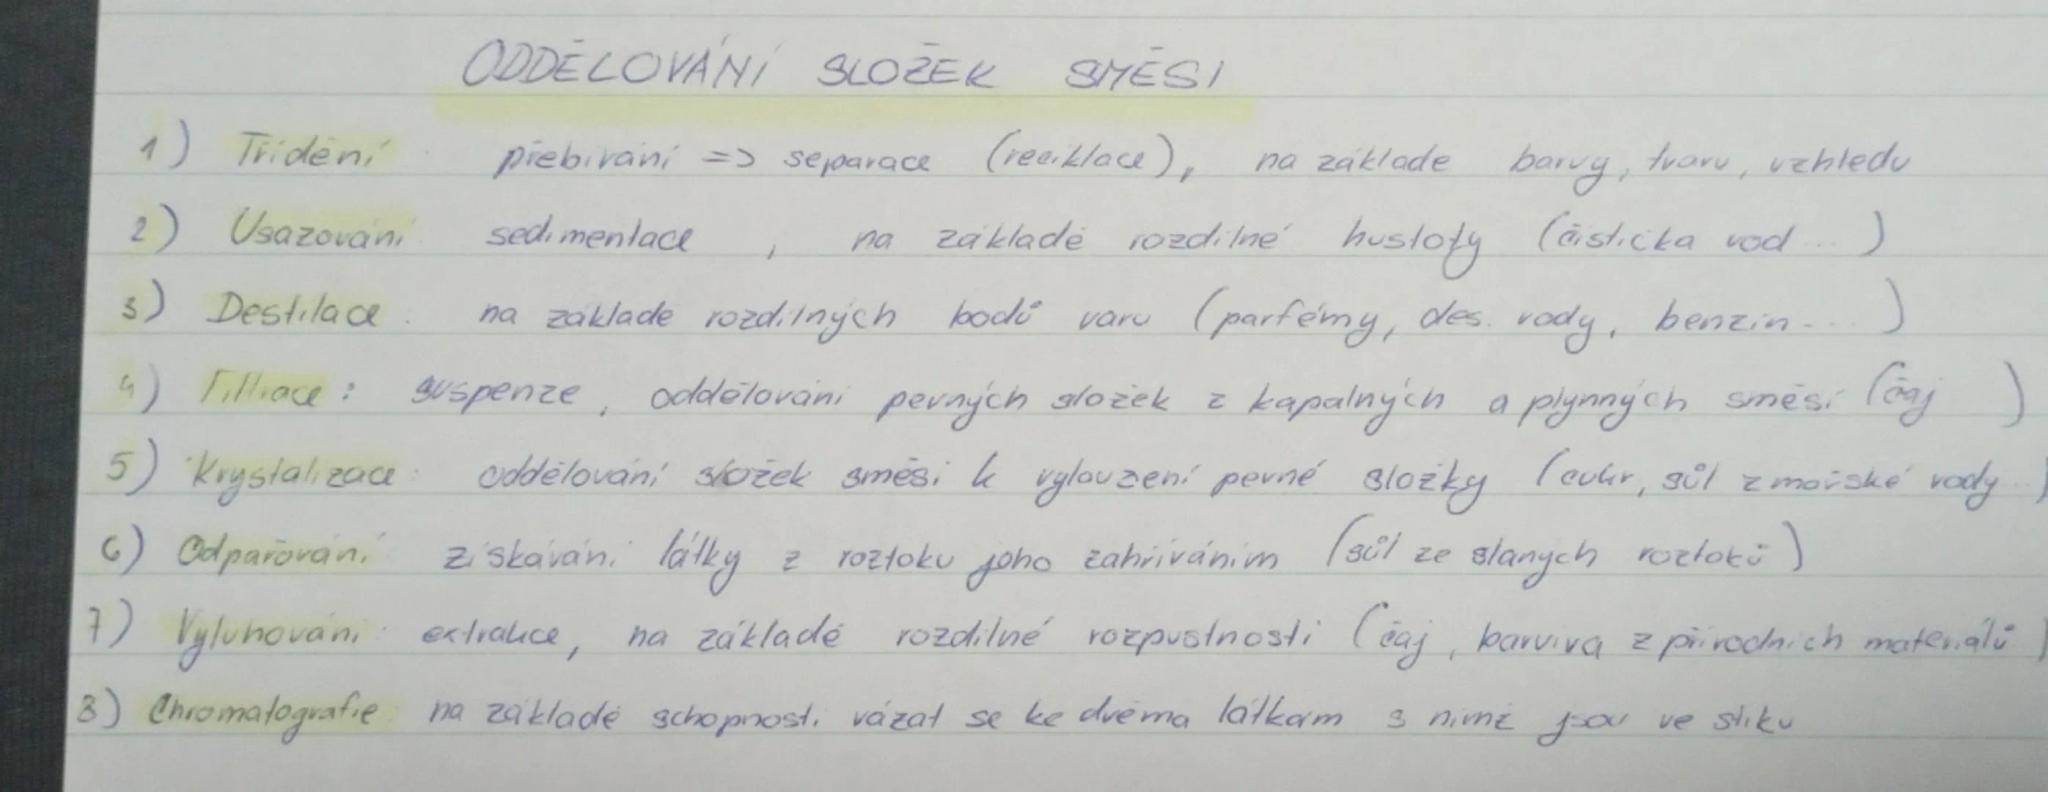 ODDĚLOVÁNÍ SLOŽEK SMĚSI
1) Třídění: přebírání => separace (reciklace), na základě barvy, tvaru, vzhledu
2) Usazování: sedimentace, na základě rozdílné hustoty (čistička vod...)
3) Destilace: na základě rozdílných bodů varu (parfémy, des. vody, benzín...)
4) Filtrace: suspenze, oddělování pevných složek z kapalných a plynných směsí (čaj )
5) Krystalizace: oddělování složek směsi k vylouzení pevné složky (cukr, sůl z mořské vody..)
6) Odpařování: získávání látky z roztoku joho zahříváním (sůl ze slaných roztoků)
7) Vyluhování: extrakce, na základě rozdílné rozpustnosti (čaj, barviva z přírodních materiálů)
8) Chromatografie: na základě schopnosti vázat se ke dvěma látkám s nimž jsou ve styku